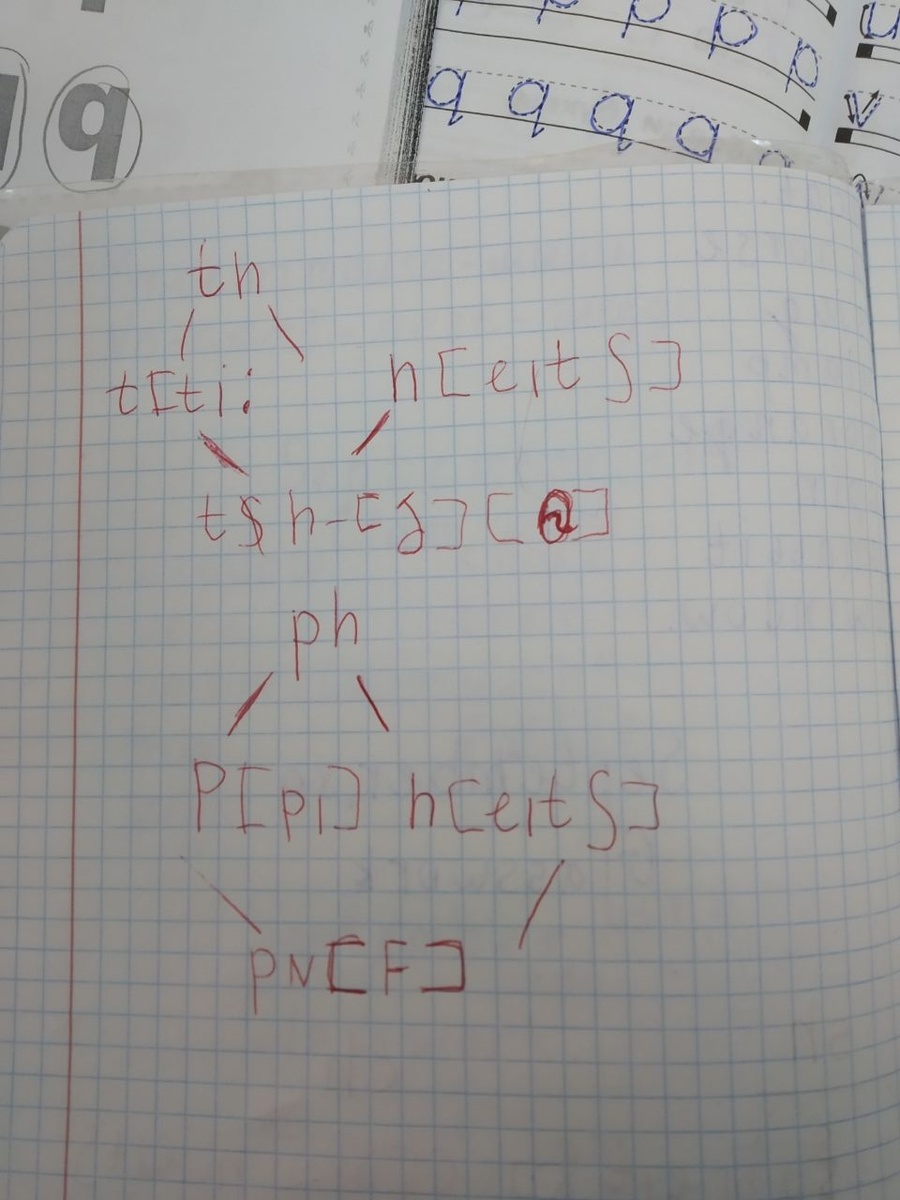 q
p p p p
q q q q
v
th
t[ti: h[eitʃ]
h-[ð]
ph
P[pi] h[eitʃ]
pN[F]